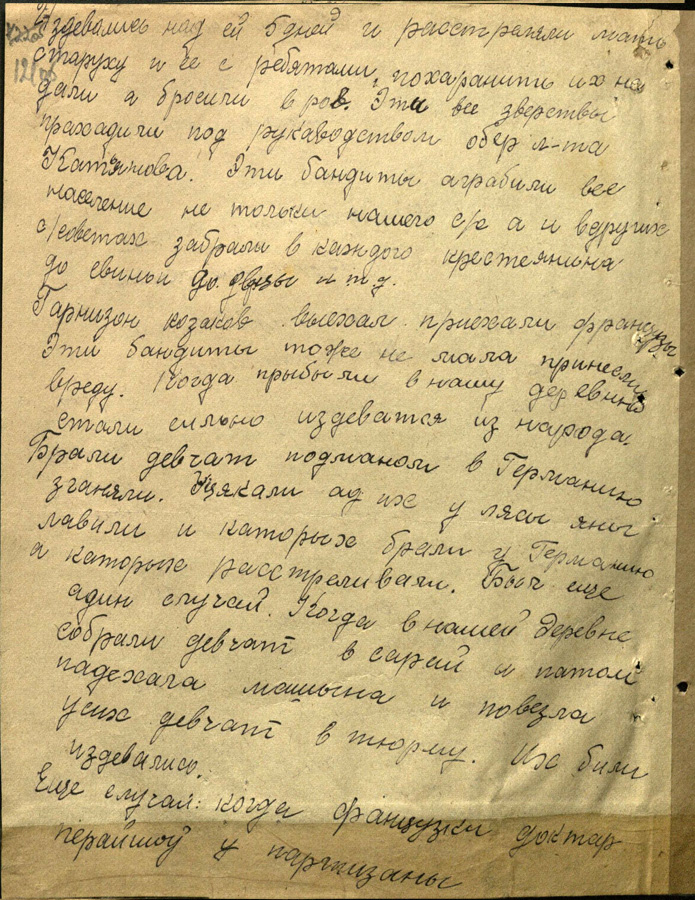 Издевались над ей бдней и расстраляли мать
старуху и ее с ребятами, похаранить их не
дали а бросили в ров. Эти все зверствы
прахадили под рукаводством обер л-та
Эти бандиты аграбили все
население не только нашего с/с а и в других
с/советах забрали в каждого крестеянина
до свиньи до
и т.д.
Гарнизон козаков выехал приехали французы
Эти бандиты тоже не мала принесли
вреду. Когда прибыли в нашу деревню
стали сильно издеватся из народа.
Брали девчат подманом в Германию
зганяли. Уцякали ад их у лясы яны
лавили и каторых брали у Германию
а каторых расстреливали. Быч еще
адин случай. Когда в нашей деревне
собрали девчат в сарей и патом
падехала машына и повезла
усих девчат в тюрму. Их били
издевались.
Еще случай: когда французки доктар
перайшоў у партизаны